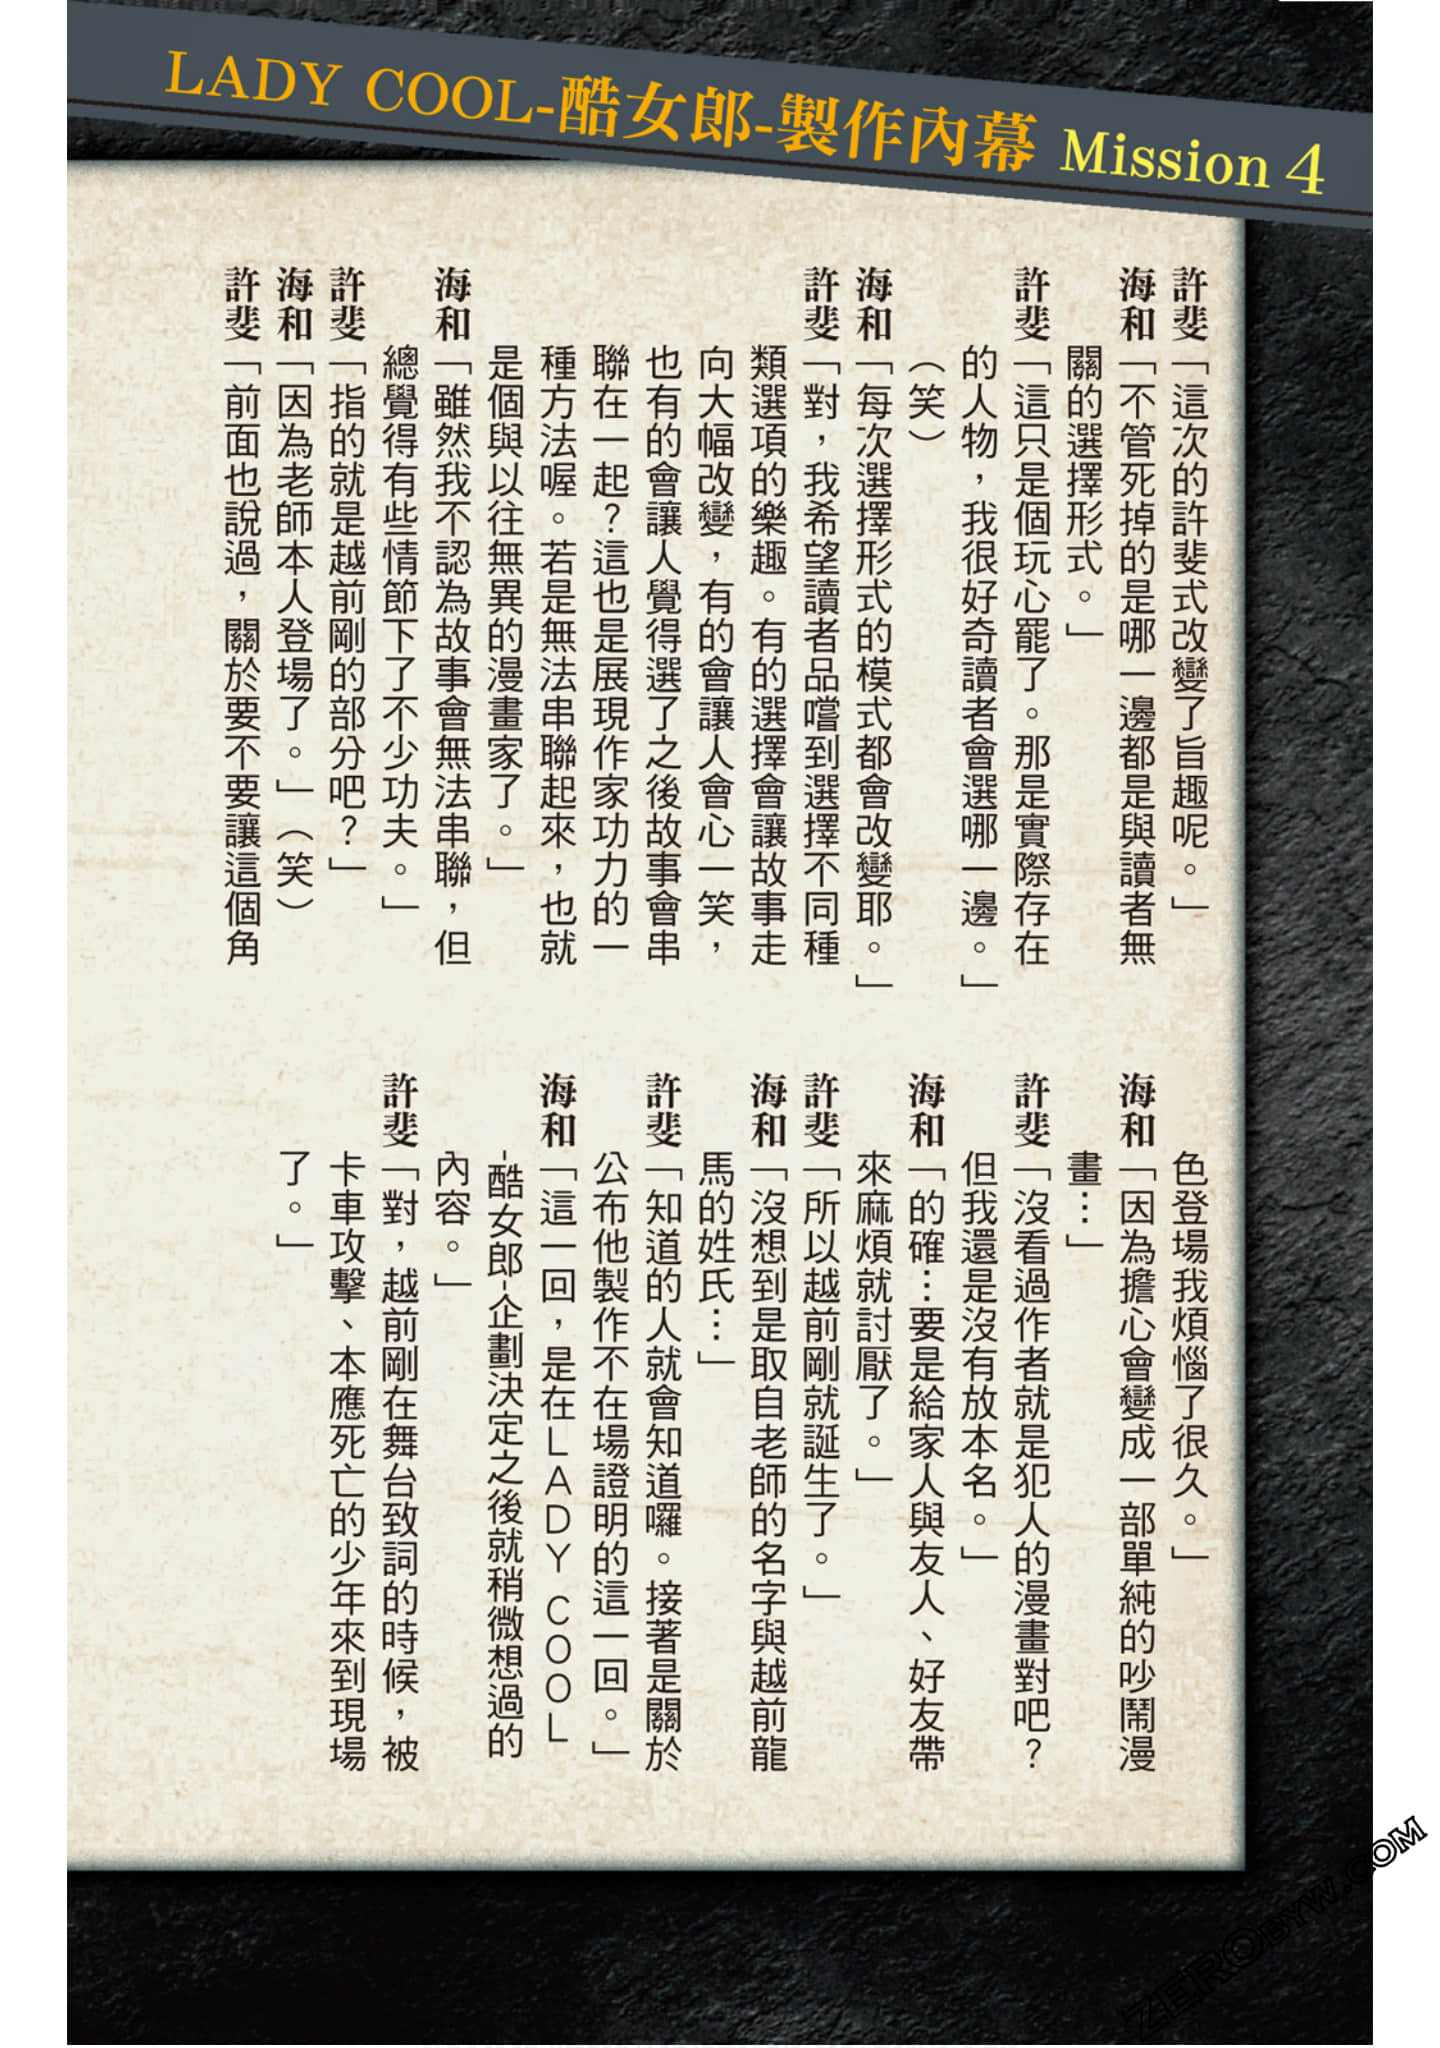 LADY COOL-酷女郎-製作內幕 Mission 4
許斐「這次的許斐式改變了旨趣呢。」
海和「不管死掉的是哪一邊都是與讀者無
關的選擇形式。」
許斐「這只是個玩心罷了。那是實際存在
的人物，我很好奇讀者會選哪一邊。」
（笑）
海和「每次選擇形式的模式都會改變耶。」
許斐「對，我希望讀者品嚐到選擇不同種
類選項的樂趣。有的選擇會讓故事走
向大幅改變，有的會讓人會心一笑，
也有的會讓人覺得選了之後故事會串
聯在一起？這也是展現作家功力的一
種方法喔。若是無法串聯起來，也就
是個與以往無異的漫畫家了。」
海和「雖然我不認為故事會無法串聯，但
總覺得有些情節下了不少功夫。」
許斐「指的就是越前剛的部分吧？」
海和「因為老師本人登場了。」（笑）
許斐「前面也說過，關於要不要讓這個角
色登場我煩惱了很久。」
海和「因為擔心會變成一部單純的吵鬧漫
畫…」
許斐「沒看過作者就是犯人的漫畫對吧？
但我還是沒有放本名。」
海和「的確…要是給家人與友人、好友帶
來麻煩就討厭了。」
許斐「所以越前剛就誕生了。」
海和「沒想到是取自老師的名字與越前龍
馬的姓氏…」
許斐「知道的人就會知道囉。接著是關於
公布他製作不在場證明的這一回。」
海和「這一回，是在LADY COOL
-酷女郎-企劃決定之後就稍微想過的
內容。」
許斐「對，越前剛在舞台致詞的時候，被
卡車攻擊、本應死亡的少年來到現場
了。」
ZEROBYW.COM